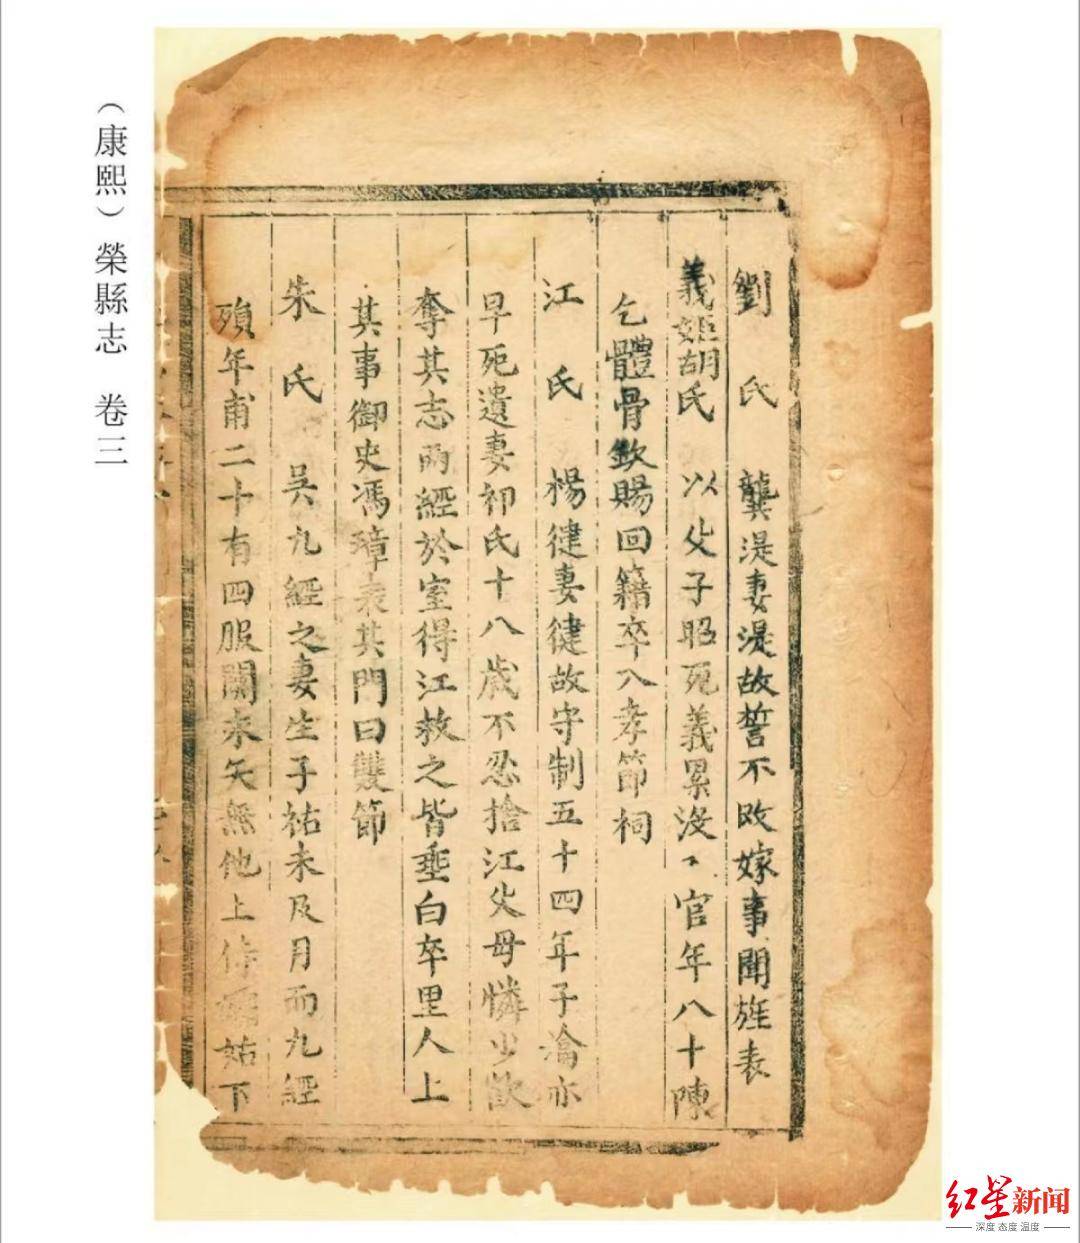 （康熙）榮縣志 卷三
劉氏 龔湜妻湜故誓不改嫁事聞旌表
義姫胡氏 以父子昭死義累沒入官年八十陳
乞體骨欽賜回籍卒入孝節祠
江氏 楊徤妻徤故守制五十四年子瀹亦
早死遺妻祁氏十八歲不忍捨江父母憐少欲
奪其志雨經於室得江救之皆垂白卒里人上
其事御史馮璋表其門曰雙節
朱氏 吳九經之妻生子祐未及月而九經
殞年甫二十有四服闋來矢無他上侍姑下
红星新闻
深度 态度 温度